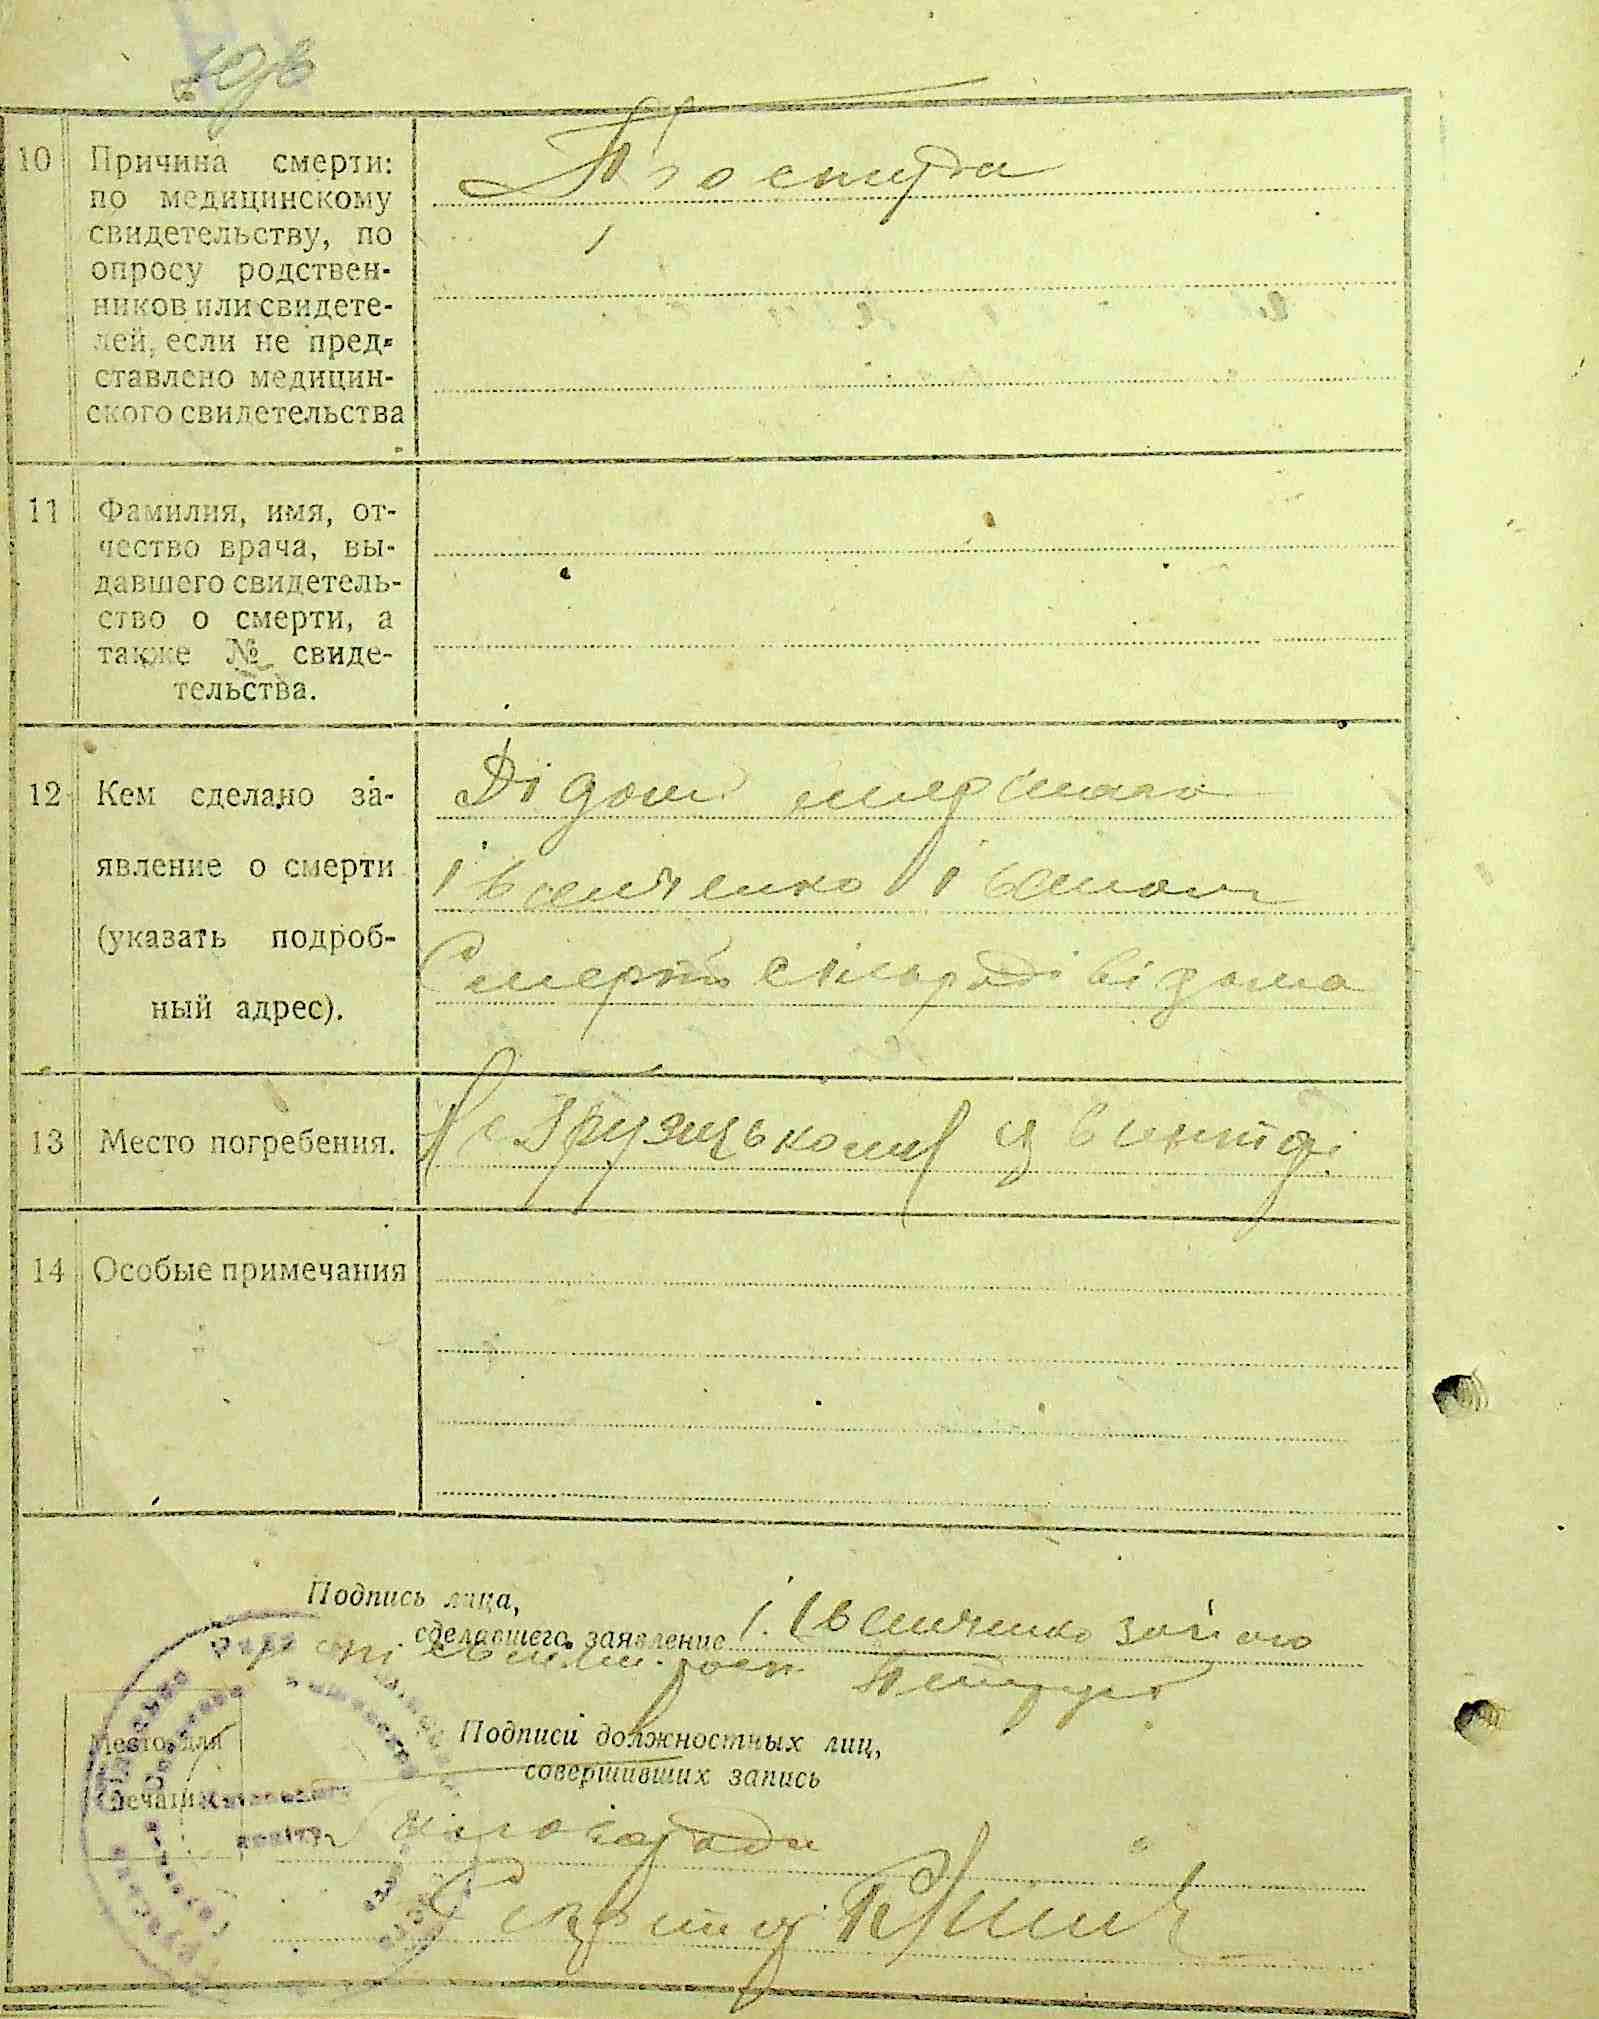 10 Причина смерти:
по медицинскому
свидетельству, по
опросу родствен-
ников или свидете-
лей, если не пред-
ставлено медицин-
ского свидетельства
Простуда
11 Фамилия, имя, от-
чество врача, вы-
давшего свидетель-
ство о смерти, а
также № свиде-
тельства.
12 Кем сделано за-
явление о смерти
(указать подроб-
ный адрес).
Дідом мершого
Іванченко Іваном
Смерть сільраді відома
13 Место погребения.
цвинтарі
14 Особые примечания
Подпись лица,
сделавшего заявление І. Іванченко за його
Подписи должностных лиц,
совершивших запись
Место для
печати
сільради
Секретар